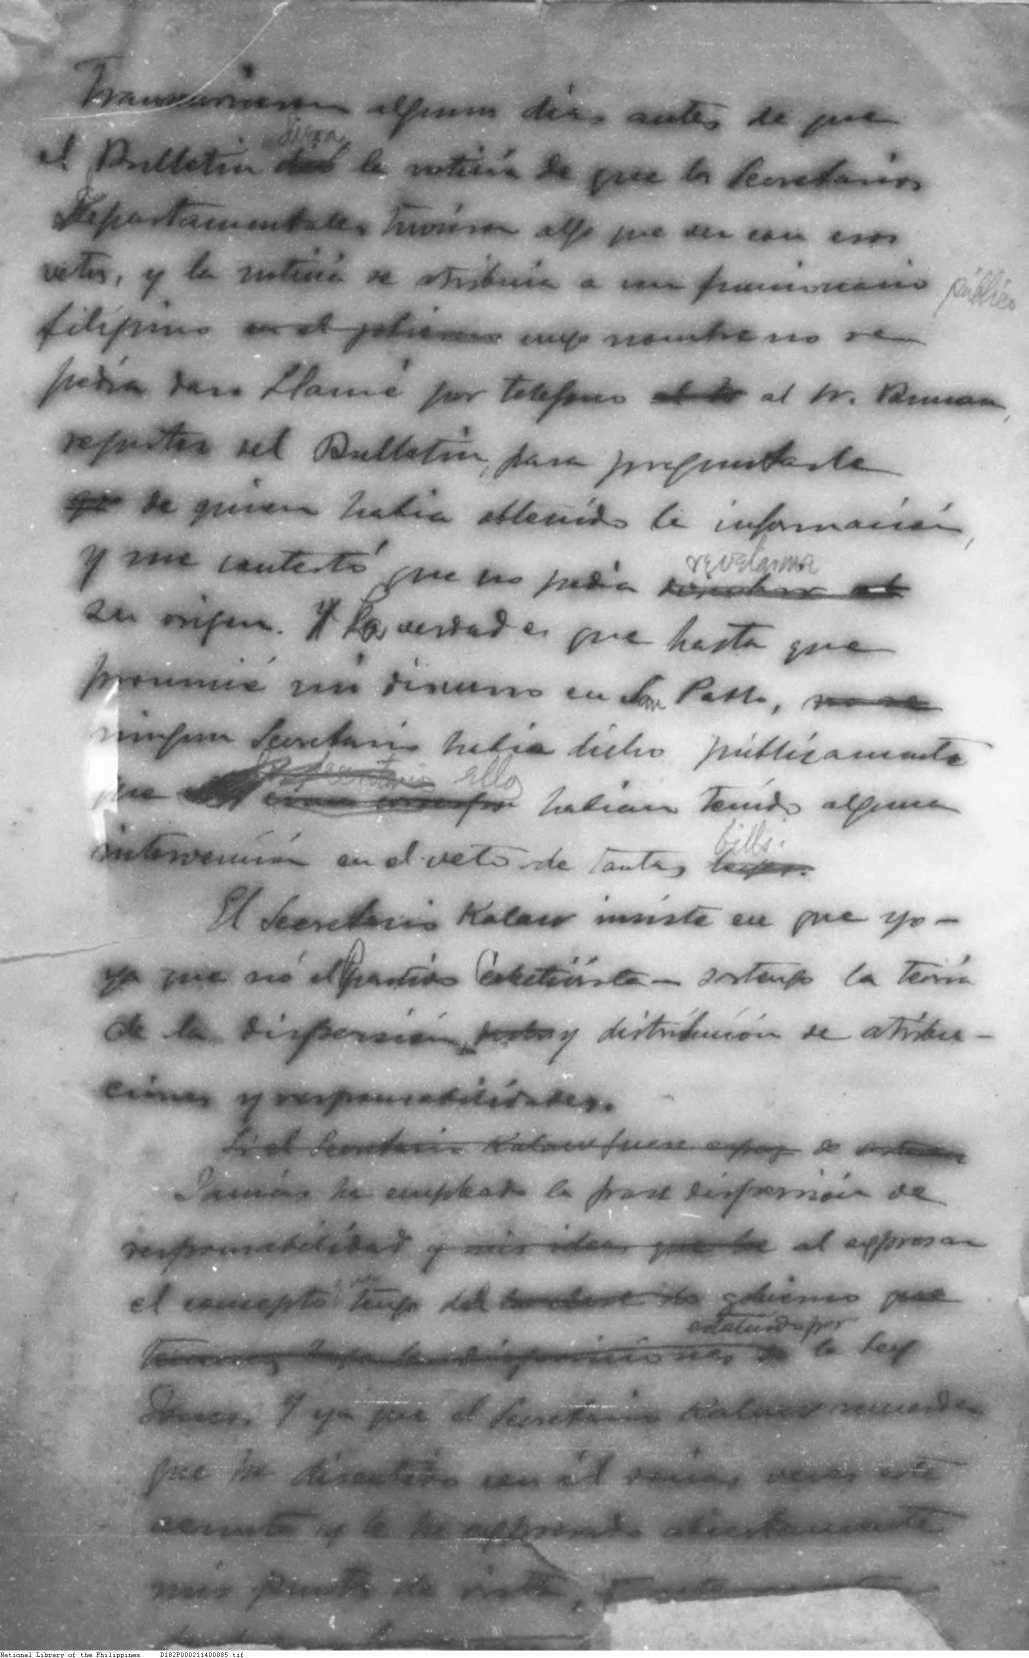 Transcurrieron algunos dias antes de que
diera
el Bulletin la noticia de que los Secretarios
Departamentales tuvieran algo que ver con esos
vetos, y la noticia se atribuia a un funcionario público
filipino en el gobierno cuyo nombre no se
podia dar. Llamé por telefono al Sr. 
reporter del Bulletin, para preguntarle
de quien habia obtenido la información,
y me contestó que no podia revelarme
su origen. Y La verdad es que hasta que
pronuncié mi discurso en San Pablo, no se
ningun Secretario habia dicho públicamente
que ellos habian tenido alguna
intervención en el veto de tantos bills.
El Secretario Kalaw insiste en que yo—
ya que nó el partido Colectivista— sostengo la teoría
de la dispersión, y distribución de atribu-
ciones y responsabilidades.
Si el Secretario Kalaw fuese capaz de
Jamás he empleado la frase dispersión de
responsabilidad y mis ideas que he al expresar
el concepto que tengo del gobierno que
estatuido por
la Ley
Jones. Y ya que el Secretario Kalaw recuerda
que he discutido con él varias veces este
asunto y le he expresado abiertamente
mis puntos de vista,
National Library of the Philippines D182P000211400085.tif